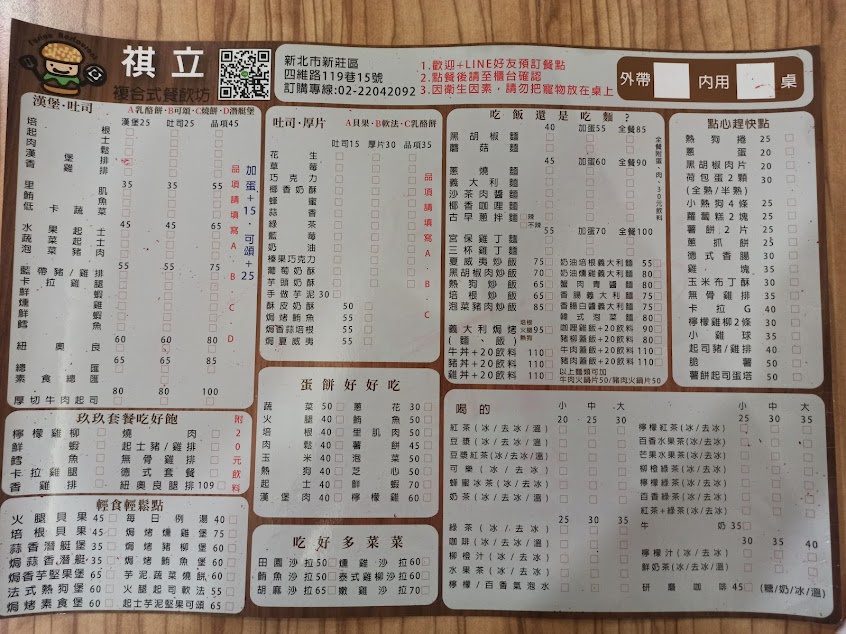 祺立
複合式餐飲坊
新北市新莊區
四維路119巷15號
訂購專線:02-22042092
1.歡迎+LINE好友預訂餐點
2.點餐後請至櫃台確認
3.因衛生因素，請勿把寵物放在桌上
外帶 內用 桌
漢堡·吐司 A乳酪餅·B可頌·C燒餅·D潛艇堡
漢堡25 吐司25 品項45
培根
起士
肉鬆
漢堡排
香雞排
35 35 55
里肌
鮪魚
低卡蔬菜
45 45 65
水果起士
蔬菜起士
泡菜豬肉
55 55 75
藍帶豬/雞排
卡拉雞腿
鮮蝦
燻雞
鮮蝦
鱈魚
60 60 80
紐奧良
65 65 85
總匯
素食總匯
80 80 100
厚切牛肉起司
品項請填寫A·B·C·D
加蛋+15·可頌+25
玖玖套餐吃好飽
檸檬雞柳 燒肉
鮮蝦 起士豬/雞排
鱈魚 無骨雞排
卡拉雞腿 德式套餐
香雞排 紐奧良腿排109
附20元飲料
輕食輕鬆點
火腿貝果45 每日例湯40
培根貝果45 焗烤燻雞堡75
蒜香潛艇堡35 焗烤豬柳堡60
焗蒜香潛艇35 焗烤鮪魚堡60
焗香芋堅果堡65 芋泥蔬菜燒餅60
法式熱狗堡60 火腿起司軟法55
焗烤素食堡60 起士芋泥堅果可頌65
吐司·厚片 A貝果·B軟法·C乳酪餅
吐司15 厚片30 品項35
花生
草莓
巧克力
椰香奶酥
蜂蜜
蒜香
綠茶
藍莓
奶油
榛果巧克力
葡萄奶酥
芋頭奶酥
手做芋泥30
酥皮奶酥 50
焗烤鮪魚 55
焗香蒜培根 55
焗夏威夷 55
品項請填寫A·B·C
蛋餅好好吃
蔬菜50 蔥花30
火腿40 鮪魚50
培根40 里肌肉50
肉鬆40 薯餅45
玉米40 泡菜50
熱狗40 芝心50
起士40 鮮蝦60
漢堡肉40 檸檬雞60
吃好多菜菜
田園沙拉50 燻雞沙拉60
鮪魚沙拉60 泰式雞柳沙拉60
胡麻沙拉65 嫩雞沙拉70
吃飯還是吃麵?
40 加蛋55 全餐85
黑胡椒麵
蘑菇麵
45 加蛋60 全餐90
蔥燒麵
義大利麵
沙茶肉醬麵
椰香咖哩麵
古早蔥拌麵 辣 不辣
55 加蛋70 全餐100
宮保雞丁麵
三杯雞丁麵
夏威夷炒飯 75 奶油培根義大利麵 55
黑胡椒肉炒飯 70 奶油燻雞義大利麵 80
熱狗炒飯 65 蟹肉青醬麵 80
培根炒飯 65 香腸義大利麵 75
泡菜豬肉炒飯 85 香腸白醬義大利麵 75
韓式泡菜麵 80
義大利焗烤 培根 火腿 熱狗 95 咖哩雞飯+20飲料 90
(麵、飯) 豬柳蓋飯+20飲料 80
牛丼+20飲料 110 牛肉蓋飯+20飲料 110
豬丼+20飲料 110 豬肉蓋飯+20飲料 110
雞丼+20飲料 110 以上麵類可加
牛肉火鍋片50/豬肉火鍋片50
點心趕快點
熱狗捲 25
蔥蛋 20
黑胡椒肉片 20
荷包蛋2顆 30
(全熟/半熟)
小熱狗4條 25
蘿蔔糕2塊 25
薯餅2片 25
蔥抓餅 25
德式香腸 30
雞塊 35
玉米布丁酥 30
無骨雞排 35
卡拉G 40
檸檬雞柳2條 30
小雞球 35
起司豬/雞排 40
脆薯 50
薯餅起司蛋塔 50
喝的
小 中 大
20 25 30
紅茶(冰/去冰/溫)
豆漿(冰/去冰/溫)
豆漿紅茶(冰/去冰/溫)
可樂(冰/去冰)
蜂蜜冰茶(冰/去冰)
奶茶(冰/去冰/溫)
25 30 35
綠茶(冰/去冰)
咖啡(冰/去冰/溫)
柳橙汁(冰/去冰)
水果茶(冰/去冰)
檸檬/百香氣泡水
小 中 大
25 30 35
檸檬紅茶(冰/去冰)
百香水果茶(冰/去冰)
芒果水果茶(冰/去冰)
柳橙綠茶(冰/去冰)
檸檬綠茶(冰/去冰)
百香綠茶(冰/去冰)
紅茶+綠茶(冰/去冰)
牛奶35
30 35 40
檸檬汁(冰/去冰)
鮮奶茶(冰/去冰/溫)
研磨咖啡45 (糖/奶/冰/溫)